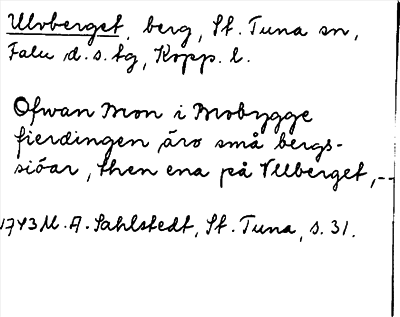 Ulvberget, berg, St. Tuna sn,
Falu d.s. tg, Kopp. l.
Ofwan Mon i Mobygge
fierdingen äro små bergs-
siöar, then ena på Vllberget,--
1743 M. A. Sahlstedt, St. Tuna, s. 31.